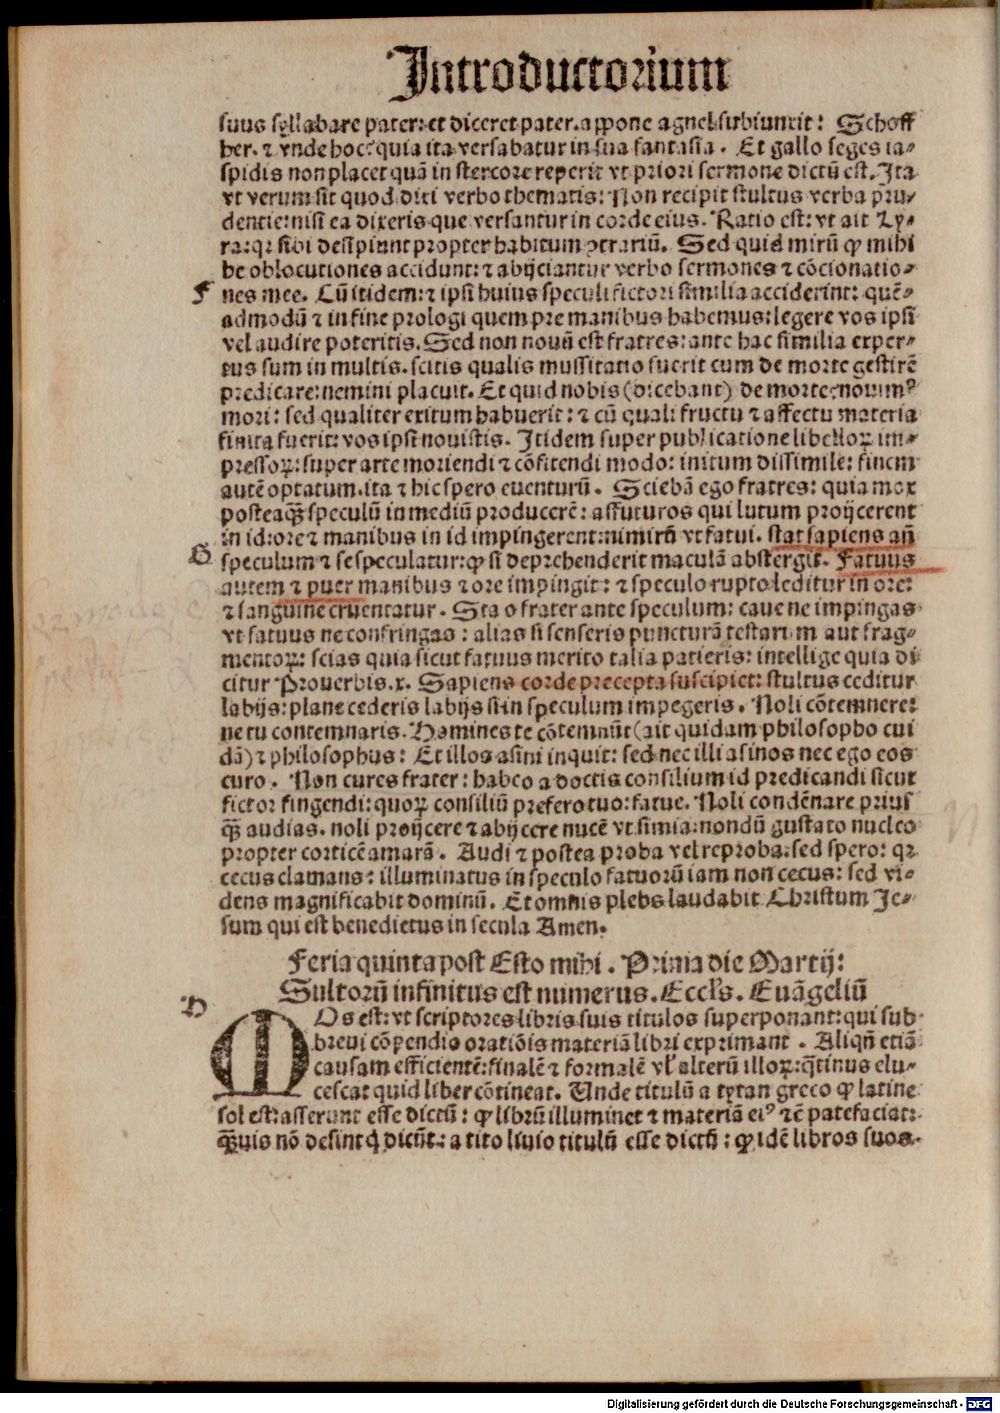 Introductorium
suus syllabare pater: et diceret pater. appone agnel. subiunxit: Schoff
ber. ⁊ vnde hoc? quia ita versabatur in sua fantasia. Et gallo seges ia-
spidis non placet quā in stercore reperit vt priori sermone dictū est. Ita
vt verum sit quod dixi verbo thematis: Non recipit stultus verba pru-
dentie: nisi ea dixeris que versantur in corde eius. Ratio est: vt ait Ly-
ra: qꝛ sibi despiunt propter habitum ꝯtrariū. Sed quid mirū ꝙ mihi
he oblocutiones accidunt: ⁊ abijciantur verbo sermones ⁊ cōcionatio-
F nes mee. Cū itidem: ⁊ ipsi huius speculi fictori similia acciderint: quē-
admodū ⁊ in fine prologi quem pre manibus habemus: legere vos ipsi
vel audire poteritis. Sed non nouū est fratres: ante hac similia exper-
tus sum in multis. scitis qualis mussitatio fuerit cum de morte gestirē
predicare: nemini placuit. Et quid nobis (dicebant) de morte: nouimꝰ
mori: sed qualiter exitum habuerit: ⁊ cū quali fructu ⁊ affectu materia
finita fuerit: vos ipsi nouistis. Itidem super publicatione libelloꝝ im-
pressoꝝ: super arte moriendi ⁊ cōfitendi modo: initum dissimile: finem
autē optatum. ita ⁊ hic spero euenturū. Sciebā ego fratres: quia mox
posteaꝙ̃ speculū in mediū producerē: affuturos qui lutum proijcerent
in id: ore ⁊ manibus in id impingerent: nimirū vt fatui. stat sapiens añ
G speculum ⁊ se speculatur: ꝙ si deprehenderit maculā abstergit. Fatuus
autem ⁊ puer manibus ⁊ ore impingit: ⁊ speculo rupto leditur in ore:
⁊ sanguine cruentatur. Sta o frater ante speculum: caue ne impingas
vt fatuus ne confringas: alias si senseris puncturā testarum aut frag-
mentoꝝ: scias quia sicut fatuus merito talia patieris: intellige quia di
citur Prouerbis. x. Sapiens corde precepta suscipiet: stultus ceditur
labijs: plane cederis labijs si in speculum impegeris. Noli cōtemnere:
ne tu contemnaris. Homines te cōtemnūt (ait quidam philosopho cui
dā) ⁊ philosophus: Et illos asini inquit: sed nec illi asinos nec ego eos
curo. Non cures frater: habeo a doctis consilium id predicandi sicut
fictor fingendi: quoꝝ consiliū prefero tuo: fatue. Noli condēnare prius
ꝙ̃ audias. noli proijcere ⁊ abijcere nucē vt simia: nondū gustato nucleo
propter corticē amarā. Audi ⁊ postea proba vel reproba: sed spero: qꝛ
cecus clamans: illuminatus in speculo fatuorū iam non cecus: sed vi-
dens magnificabit dominū. Et omnis plebs laudabit Christum Je-
sum qui est benedictus in secula Amen.
Feria quinta post Esto mihi. Prima die Martij:
Sultorū infinitus est numerus. Eccl's. Euāgeliū
H MOs est: vt scriptores libris suis titulos superponant: qui sub
breui cōpendio oratiōis materiā libri exprimant. Aliqñ etiā
causam efficientē: finalē ⁊ formalē vl' alterū illoꝝ: q̄tinus elu-
cescat quid liber cōtineat. Unde titulū a tytan greco ꝙ latine
sol est: asserunt esse dictū: ꝙ librū illuminet ⁊ materiā eiꝰ ⁊ē patefaciat:
ꝙ̃uis nō desint q̇ dicūt: a tito liuio titulū esse dictū: ꝙ idē libros suos.
Digitalisierung gefördert durch die Deutsche Forschungsgemeinschaft - DFG